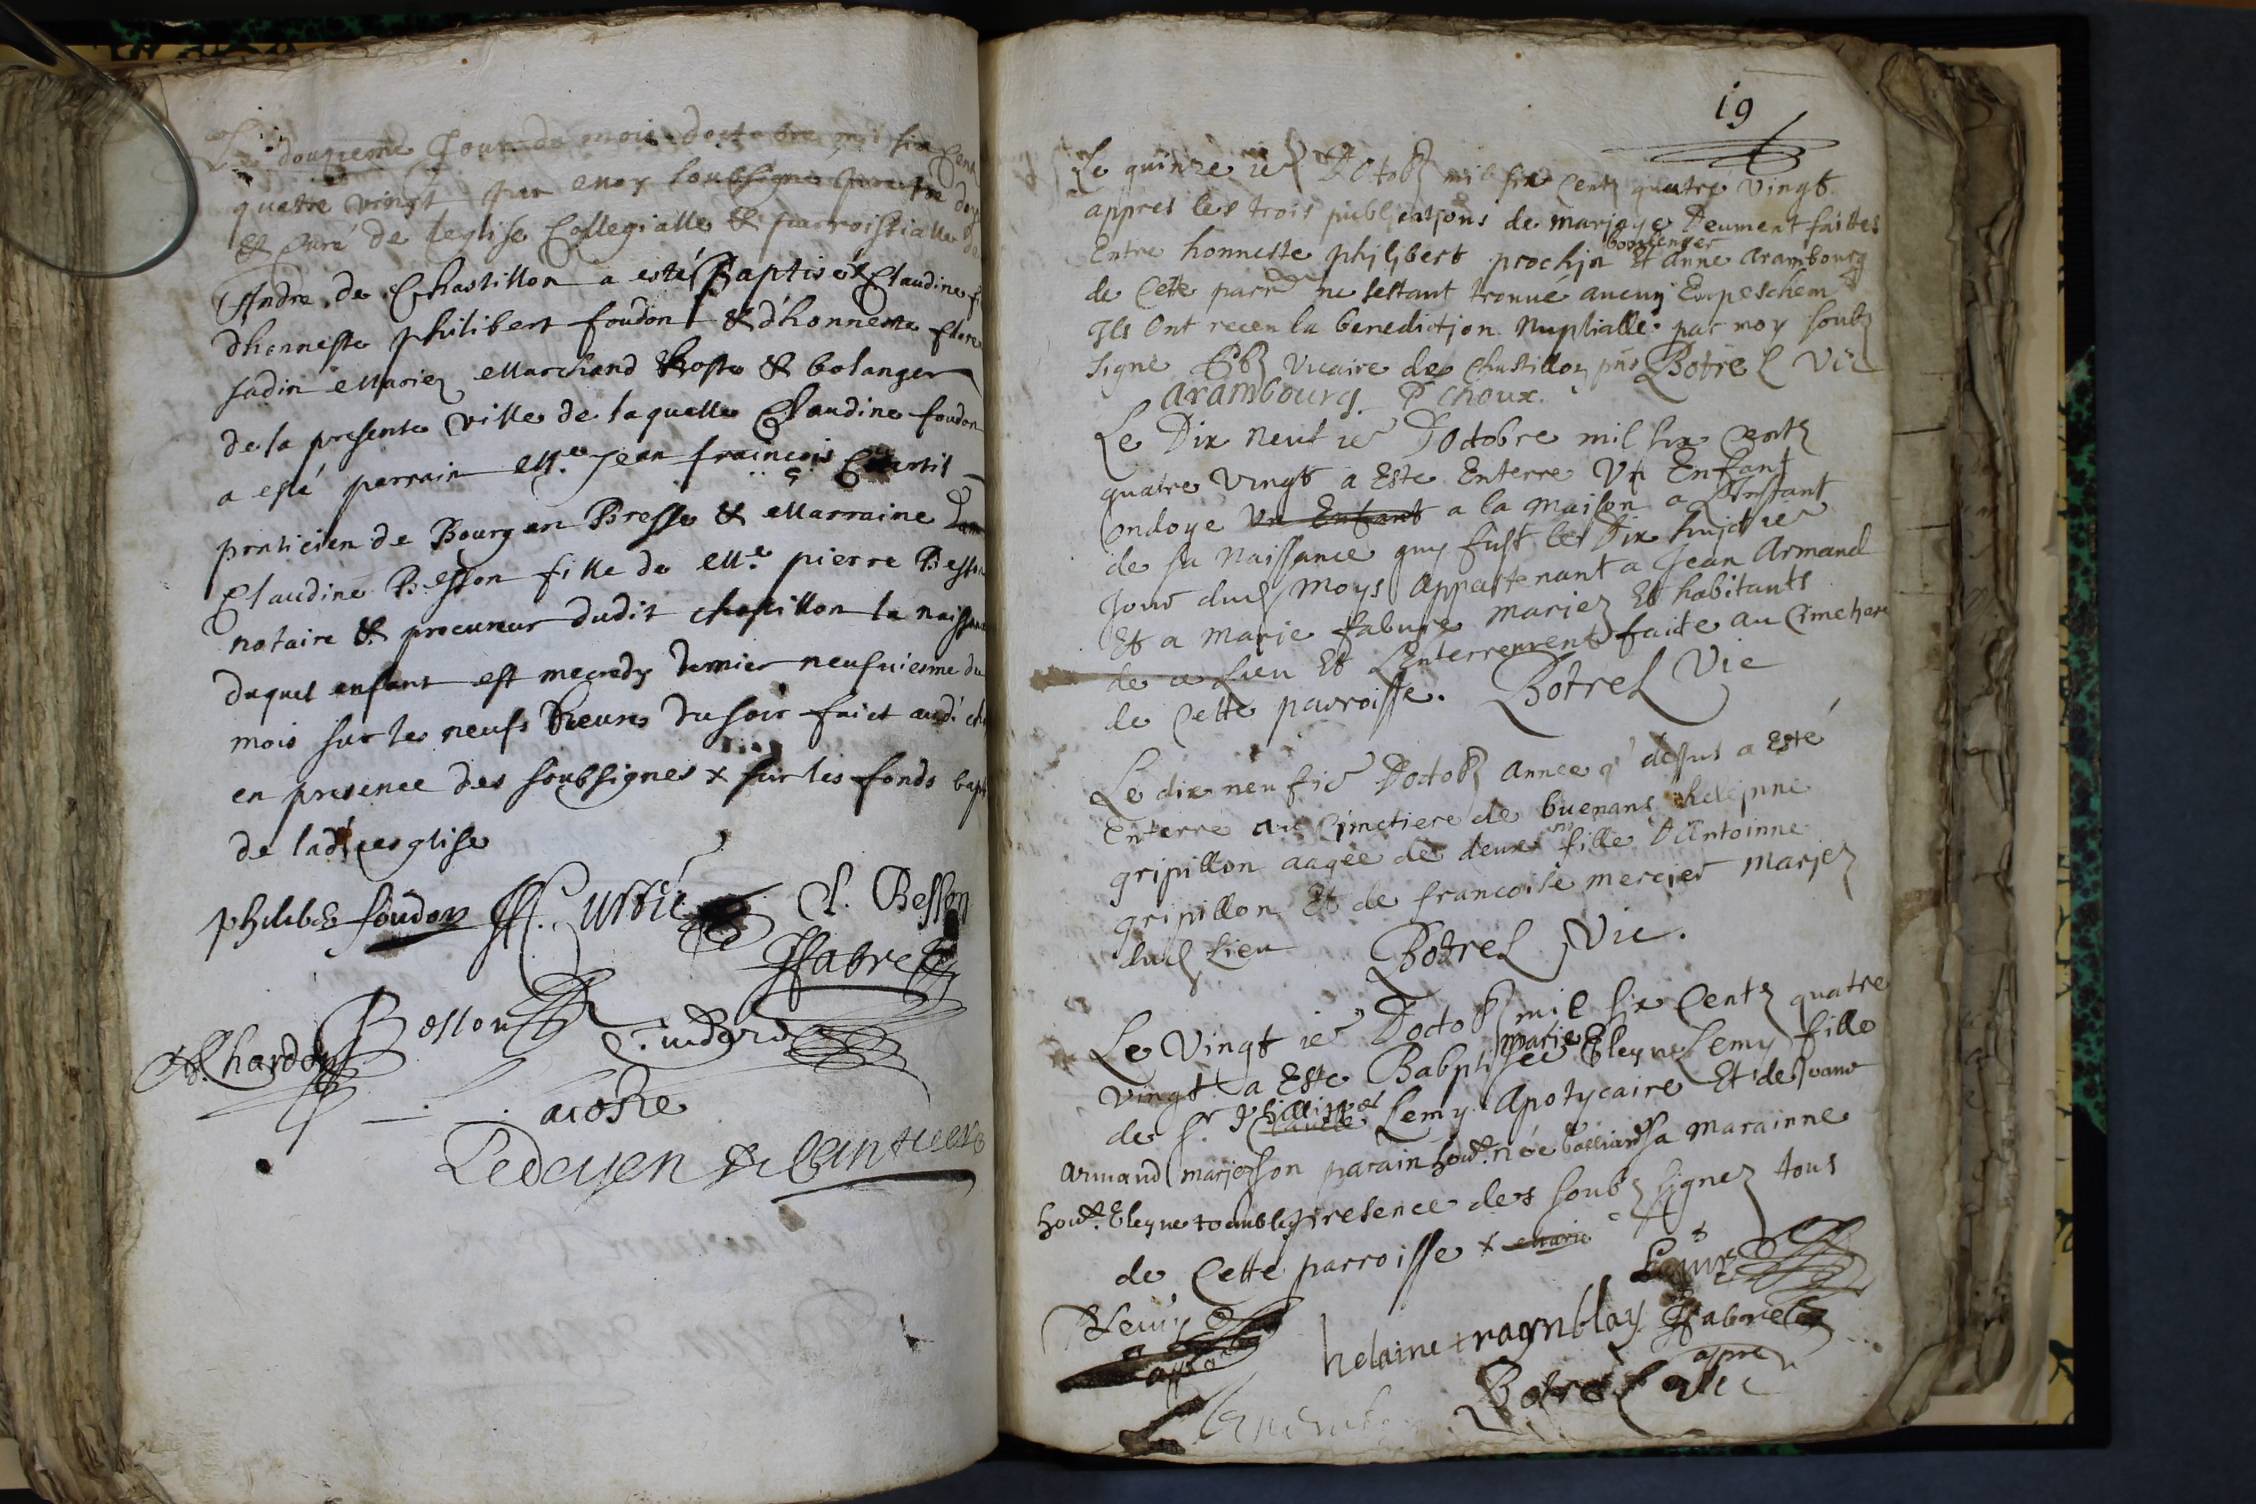 Le douzieme Jour du mois doctobre mil six cent
quatre vingt par moy soubsigné prestre doyen
& curé de leglise Collegialle & parroissialle
Andre de Chastillon a esté Baptisé Claudine
dhonneste philibert foudon & d'honneste
sadin Mariez Marchand hoste & bolanger
de la presente ville de laquelle Claudine foudon
a esté parrain Me Jean francois
praticien de Bourg en Bresse & Marraine
Claudine Besson fille de Me pierre Besson
notaire & procureur dudit chastillon la naissance
duquel enfant est mecredy dernier neufviesme du
mois sur les neufs heures du soir faict aud.
en presence des soubsignes x sur les fonds bapt
de lad. eeglise
philibe foudon C. Besson
Ffabre
Chardon Besson
Lacoste
Ledoyen
19
Le quinze ie D'octob mil six Cent quatre vingt
appres les trois publications de marjage Deument faittes
Entre honneste philjbert prochin boullenger Et anne arambourg
de Cete parr ne sestant trouué aucun Empeschem
Ils Ont receu la benedictjon Nuptialle par moy soub
signé Vicaire de Chastillon pns Botrel Vic
arambourg P choux.
Le Dix neuf ie D'octobre mil six Cent
quatre Vingt a Este Enterre Un Enfant
Ondoye Un Enfant a la maison a L'instant
de sa Naissance quy fust le Dix huict ie
Jour dud Moys appartenant a Jean Armand
Et a Marie fabure Mariez Et habitants
de ce Lieu Et L'enterrement faite au Cimetiere
de Cette parroisse. Botrel Vic
Le dix neuf ie D'octob annee q dessus a Esté
Enterre au Cimetiere de buenans heleinne
gripillon aagée de deux fille D'Antoinne
gripillon Et de francoise mercier Marjez
dud Lieu Botrel Vic.
Le Vingt ie D'octob mil six Cent quatre
vingt a Este Babptisee marie Eleyne Lemy fille
de Sr philippe Claude Lemy Apotycaire Et de
Armand marjez son parain sa Marainne
Eleyne presence des soub signez tous
de Cette parroisse x marie
Lemy
helaine tramblay Ffabre
Botrel Vic